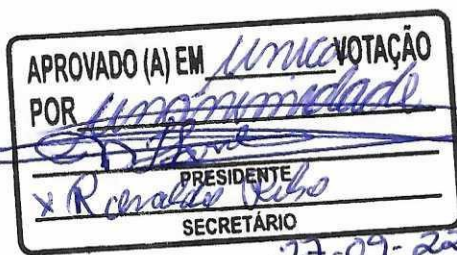 APROVADO (A) EM unica VOTAÇÃO
POR unanimidade
PRESIDENTE
x Ronaldo
SECRETÁRIO
27-09-